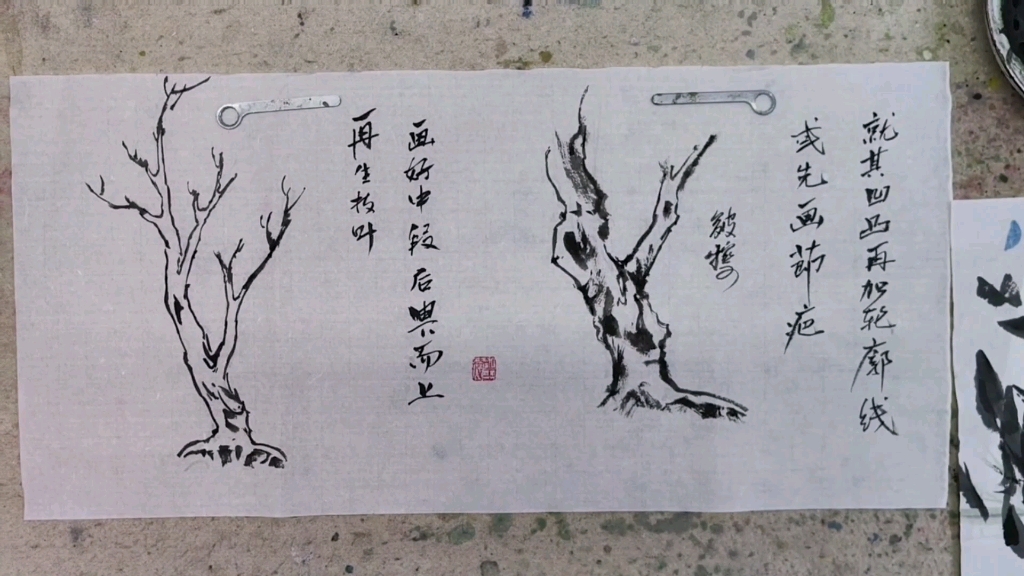 就其凹凸再加轮廓线
或先画节疤
皴擦
画好中段后兴而上
再生枝叶